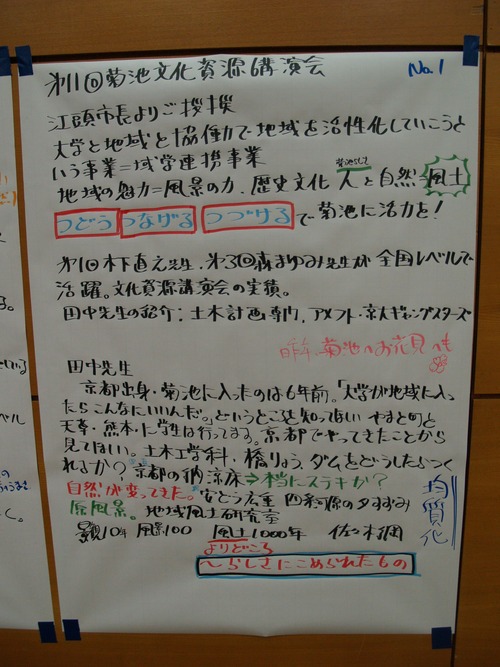 第11回菊池文化資源講演会
No.1
江頭市長よりご挨拶
大学と地域と協働力で地域を活性化していこうと
いう事業=域学連携事業
地域の魅力=風景の力、歴史文化 人と自然=風土
つどう つなげる つづける で菊池に活力を!
第1回木下直之先生、第3回森まゆみ先生が全国レベルで
活躍。文化資源講演会の実績。
田中先生の紹介:土木計画専門、アメフト・京大ギャングスターズ
昨年、菊池へお花見へも
田中先生
京都出身・菊池に入ったのは6年前。「大学が地域に入っ
たらこんなにいいんだ。」というところを知ってほしい やまと町と
天草・熊本に学生は行ってます。京都でやってきたことから
見てほしい。土木工学科、橋りょう、ダムをどうしたらつく
れるか? 京都の納涼床⇒本当にステキか?
自然が変ってきた。安どう広重 四条河原の夕すずみ
原風景。地域風土研究室
均質化
景観10年 風景100 風土1000年 佐々木綱
よりどころ
〜らしさにこめられたもの